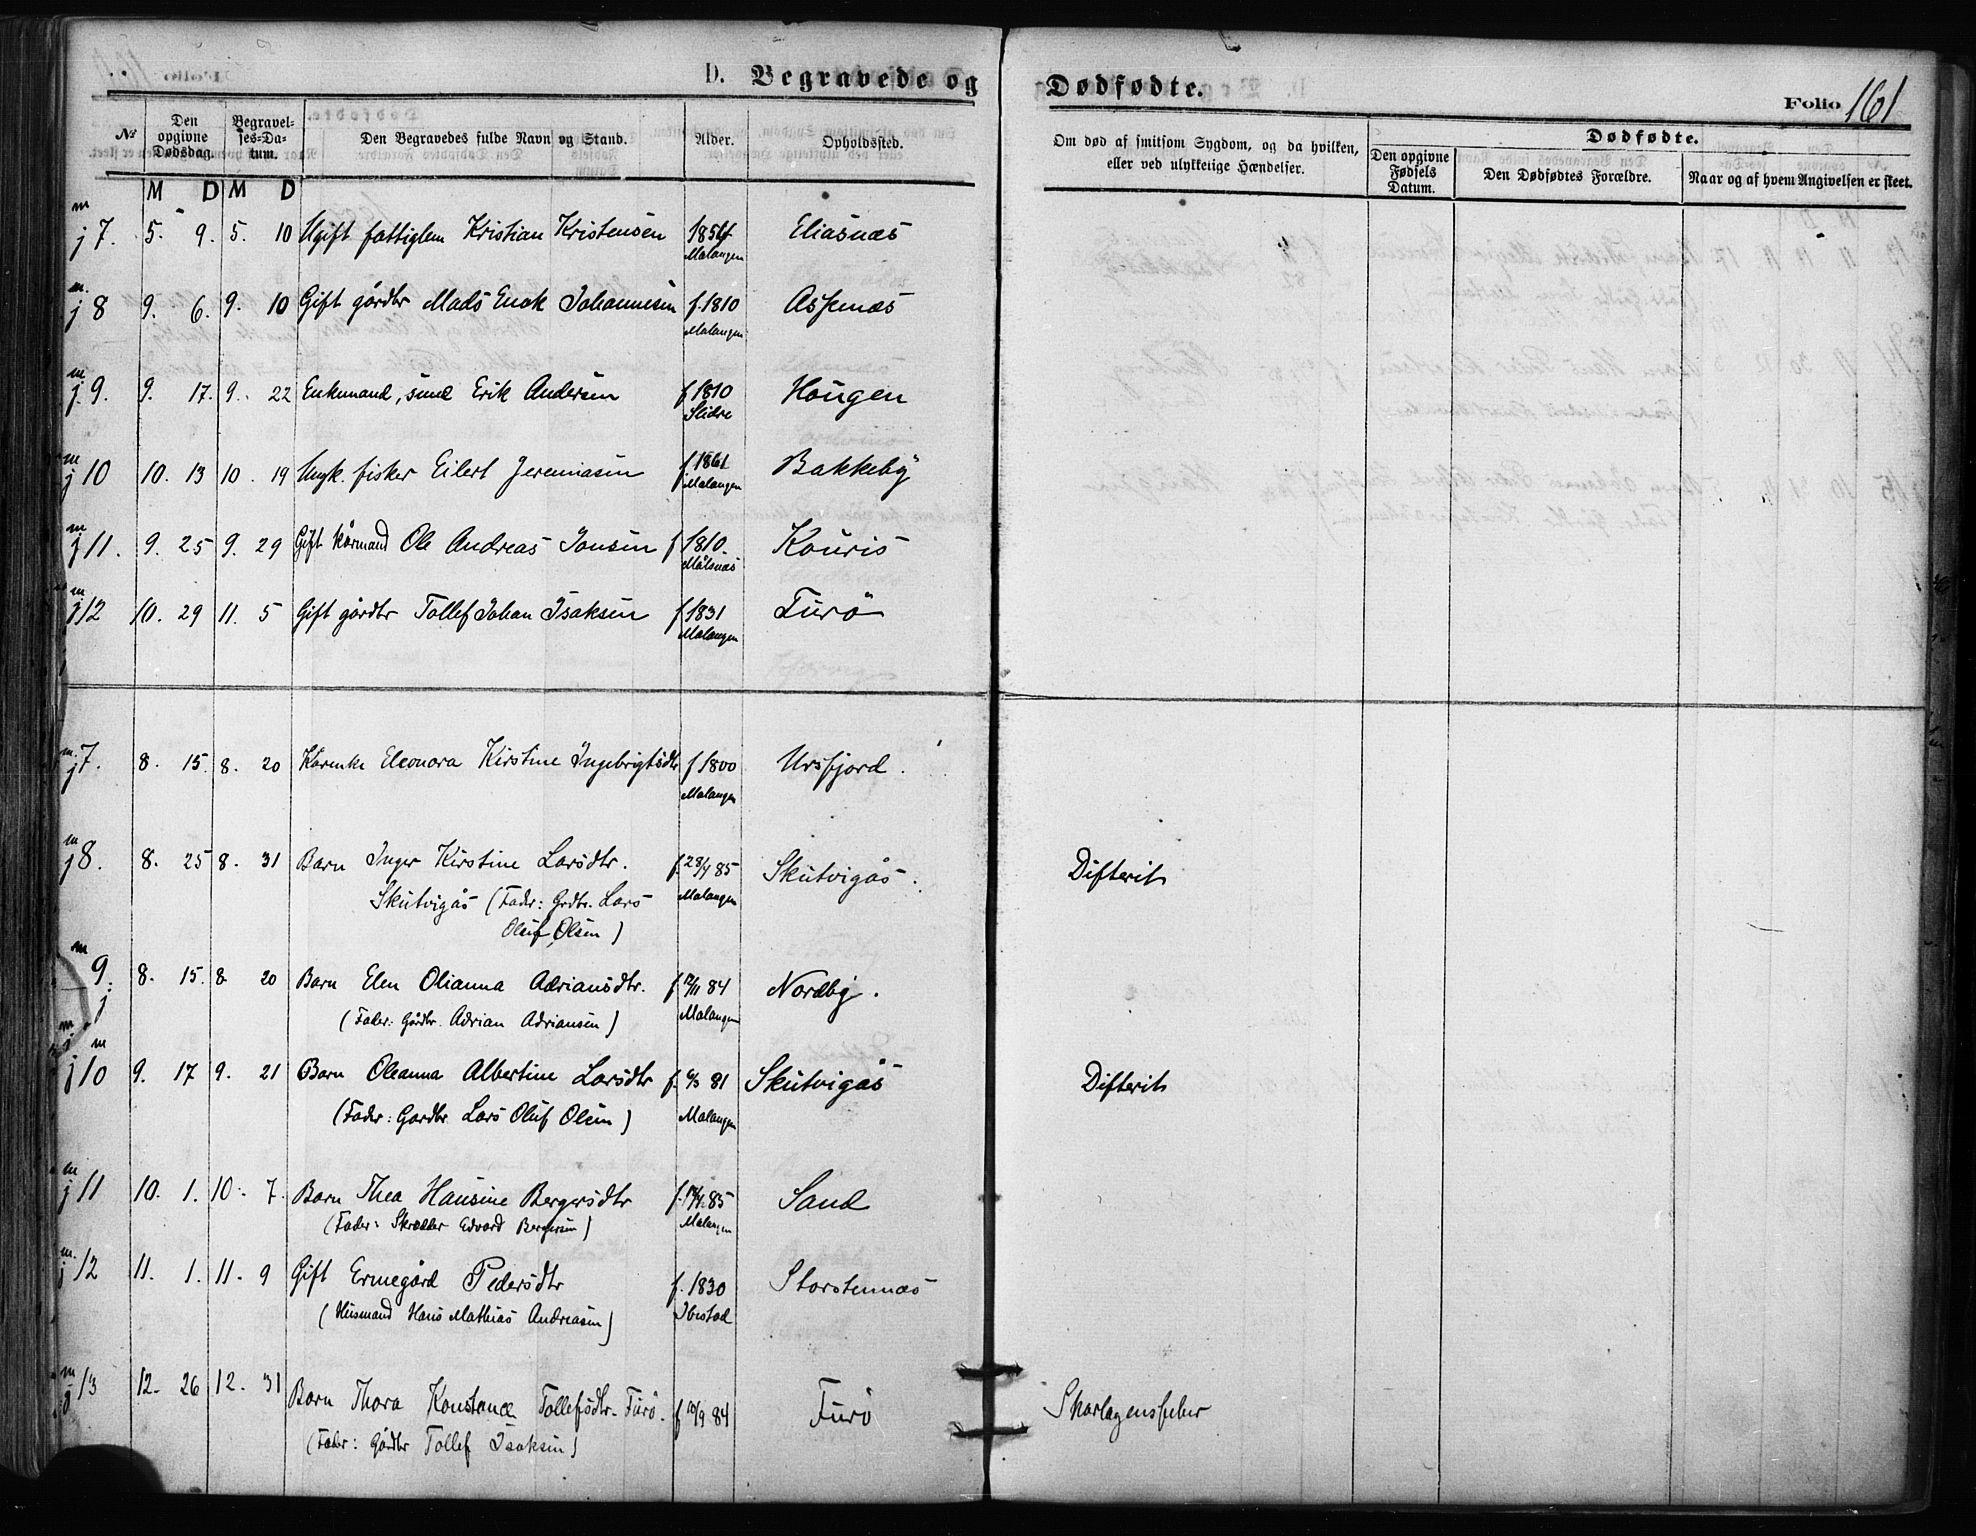 D. Begravede og Dødfødte.
Folio 161
№ Den opgivne Dødsdag. Begravelses-Datum. Den Begravedes fulde Navn og Stand. Alder. Opholdssted. Om død af smitsom Sygdom, og da hvilken, eller ved ulykkelige Hændelser. Dødfødte. Den opgivne Fødsels Datum. Den Dødfødtes Forældre. Naar og af hvem Angivelsen er skeet.
M D M D
m
j 7. 5. 9. 5. 10 Ugift fattiglem Kristian Kristensen 1854 Eliasnæs
Malangen
m
j 8 9. 6. 9. 10 Gift gårdbr Mads Enok Johannesen f. 1810 Aspenæs
Malangen
m
j 9. 9. 17. 9. 22 Enkemand, Erik Andersen f 1810 Hougen
Slidre
m
j 10 10. 13 10. 19 Ungk. fisker Eilert Jeremiasen f 1861 Bakkeby
Malangen
m
j 11. 9. 25 9. 29 Gift kårmand Ole Andreas Jonsen f 1810. Kouris
Målsnæs
m
j 12 10. 29 11. 5 Gift gårdbr Tollef Johan Isaksen f. 1831 Turö
Malangen
m
j 7. 8. 15. 8. 20 Kårenke Eleonora Kirstine Ingebrigtsdtr f 1800 Ursfjord.
Malangen
m
j 8. 8. 25 8. 31 Barn Inger Kirstine Larsdtr. f. 28/4 85 Skutvigås. Difterit
Skutvigås (Fader: Grdbr. Lars Malangen
Oluf Olsen)
m
9. 8. 15. 8. 20 Barn Elen Olianna Adriansdtr. f. 12/11 84 Nordby.
j (Fader: Gårdbr. Adrian Adriansen) Malangen
m
j 10 9. 17 9. 21 Barn Oleanna Albertine Larsdtr f. 6/3 81 Skutvigås Difterit
(Fader: Gardbr Lars Oluf Olsen) Malangen
m
j 11 10. 1. 10. 7. Barn Thea Hansine Bergersdtr f. 85 Sand
(Fader: Skrædder Edvard Bergersen) Malangen
m.
j 12 11. 1. 11. 9 Gift Ermegård Pedersdtr f. 1830 Storstennæs
(Husmand Hans Mathias Andreasen) Ibestad
m
j 13 12. 26 12. 31 Barn Thora Konstance Tollefsdtr. Turö. f 10/9 84 Turö Skarlagensfeber
(Fader: Gårdbr Tollef Isaksen)